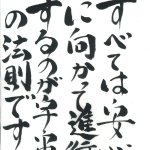 すべては安
に向かって進行
するのが宇宙
の法則です